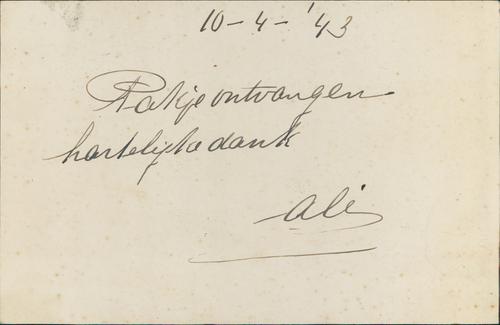 10-4-'43
Pakje ontvangen
hartelijke dank
Ali